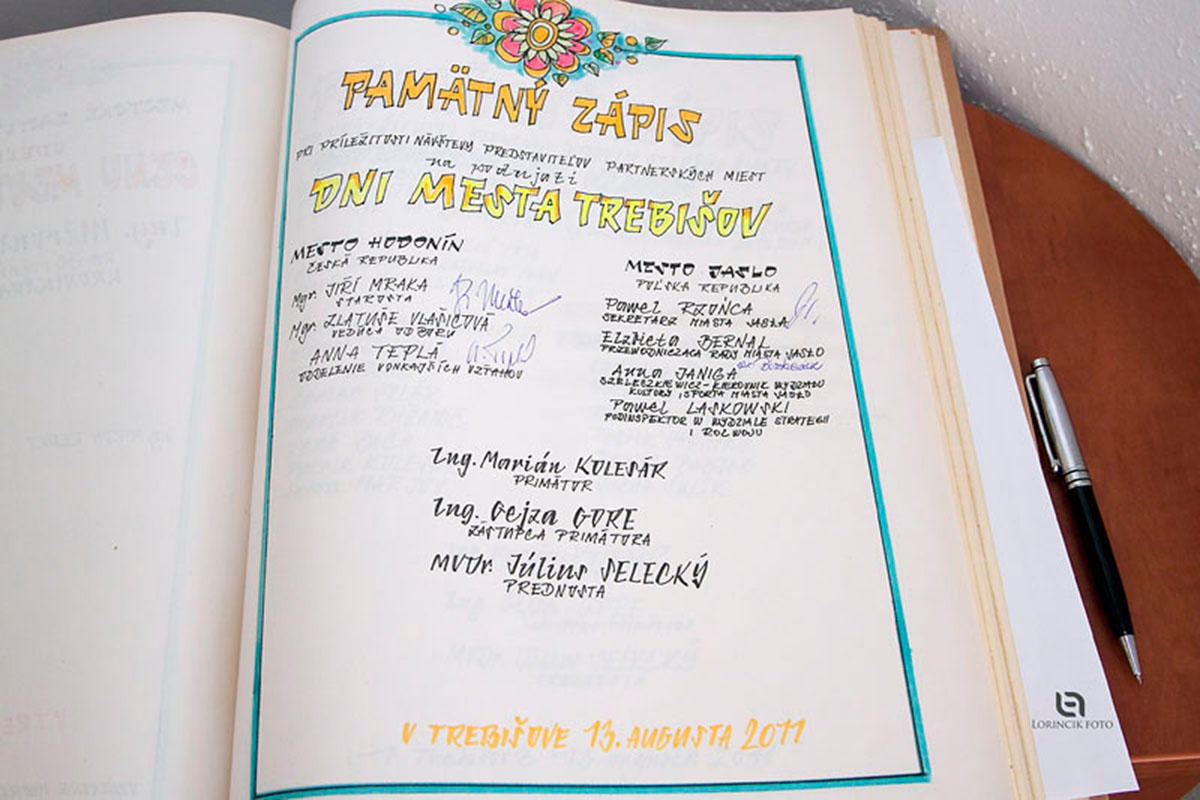 PAMÄTNÝ ZÁPIS
PRI PRÍLEŽITOSTI NÁVŠTEVY PREDSTAVITEĽOV PARTNERSKÝCH MIEST
na podujatí
DNI MESTA TREBIŠOV
MESTO HODONÍN
ČESKÁ REPUBLIKA
Mgr. JIŘÍ MRAKA
STAROSTA
Mgr. ZLATUŠE VLAŠICOVÁ
VEDÚCA ODBORU
ANNA TEPLÁ
ODDELENIE VONKAJŠÍCH VZŤAHOV
MESTO JASLO
POĽSKÁ REPUBLIKA
Paweł RZOŃCA
SEKRETARZ MIASTA JASŁA
Elżbieta BERNAL
PRZEWODNICZACA RADY MIASTA JASŁO
Anna JANIGA
SZELESZKIEWICZ-KIEROWNIK WYDZIAŁU
KULTURY I SPORTA MIASTA JASŁO
Paweł LASKOWSKI
PODINSPEKTOR W WYDZIALE STRATEGII
I ROZWOJU
Ing. Marián KOLESÁR
PRIMÁTOR
Ing. Gejza GORE
ZÁSTUPCA PRIMÁTORA
MVDr. Július SELECKÝ
PREDNOSTA
V TREBIŠOVE 13. AUGUSTA 2011
LORINCIK FOTO